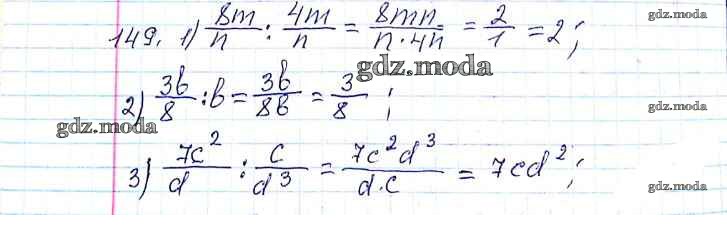 149. 1) 8m/n : 4m/n = 8mn/n·4n = 2/1 = 2;
gdz.moda
gdz.moda
gdz.moda
2) 3b/8 : b = 3b/8b = 3/8;
gdz.moda
gdz.moda
3) 7c²/d : c/d³ = 7c²d³/d·c = 7cd²;
gdz.moda